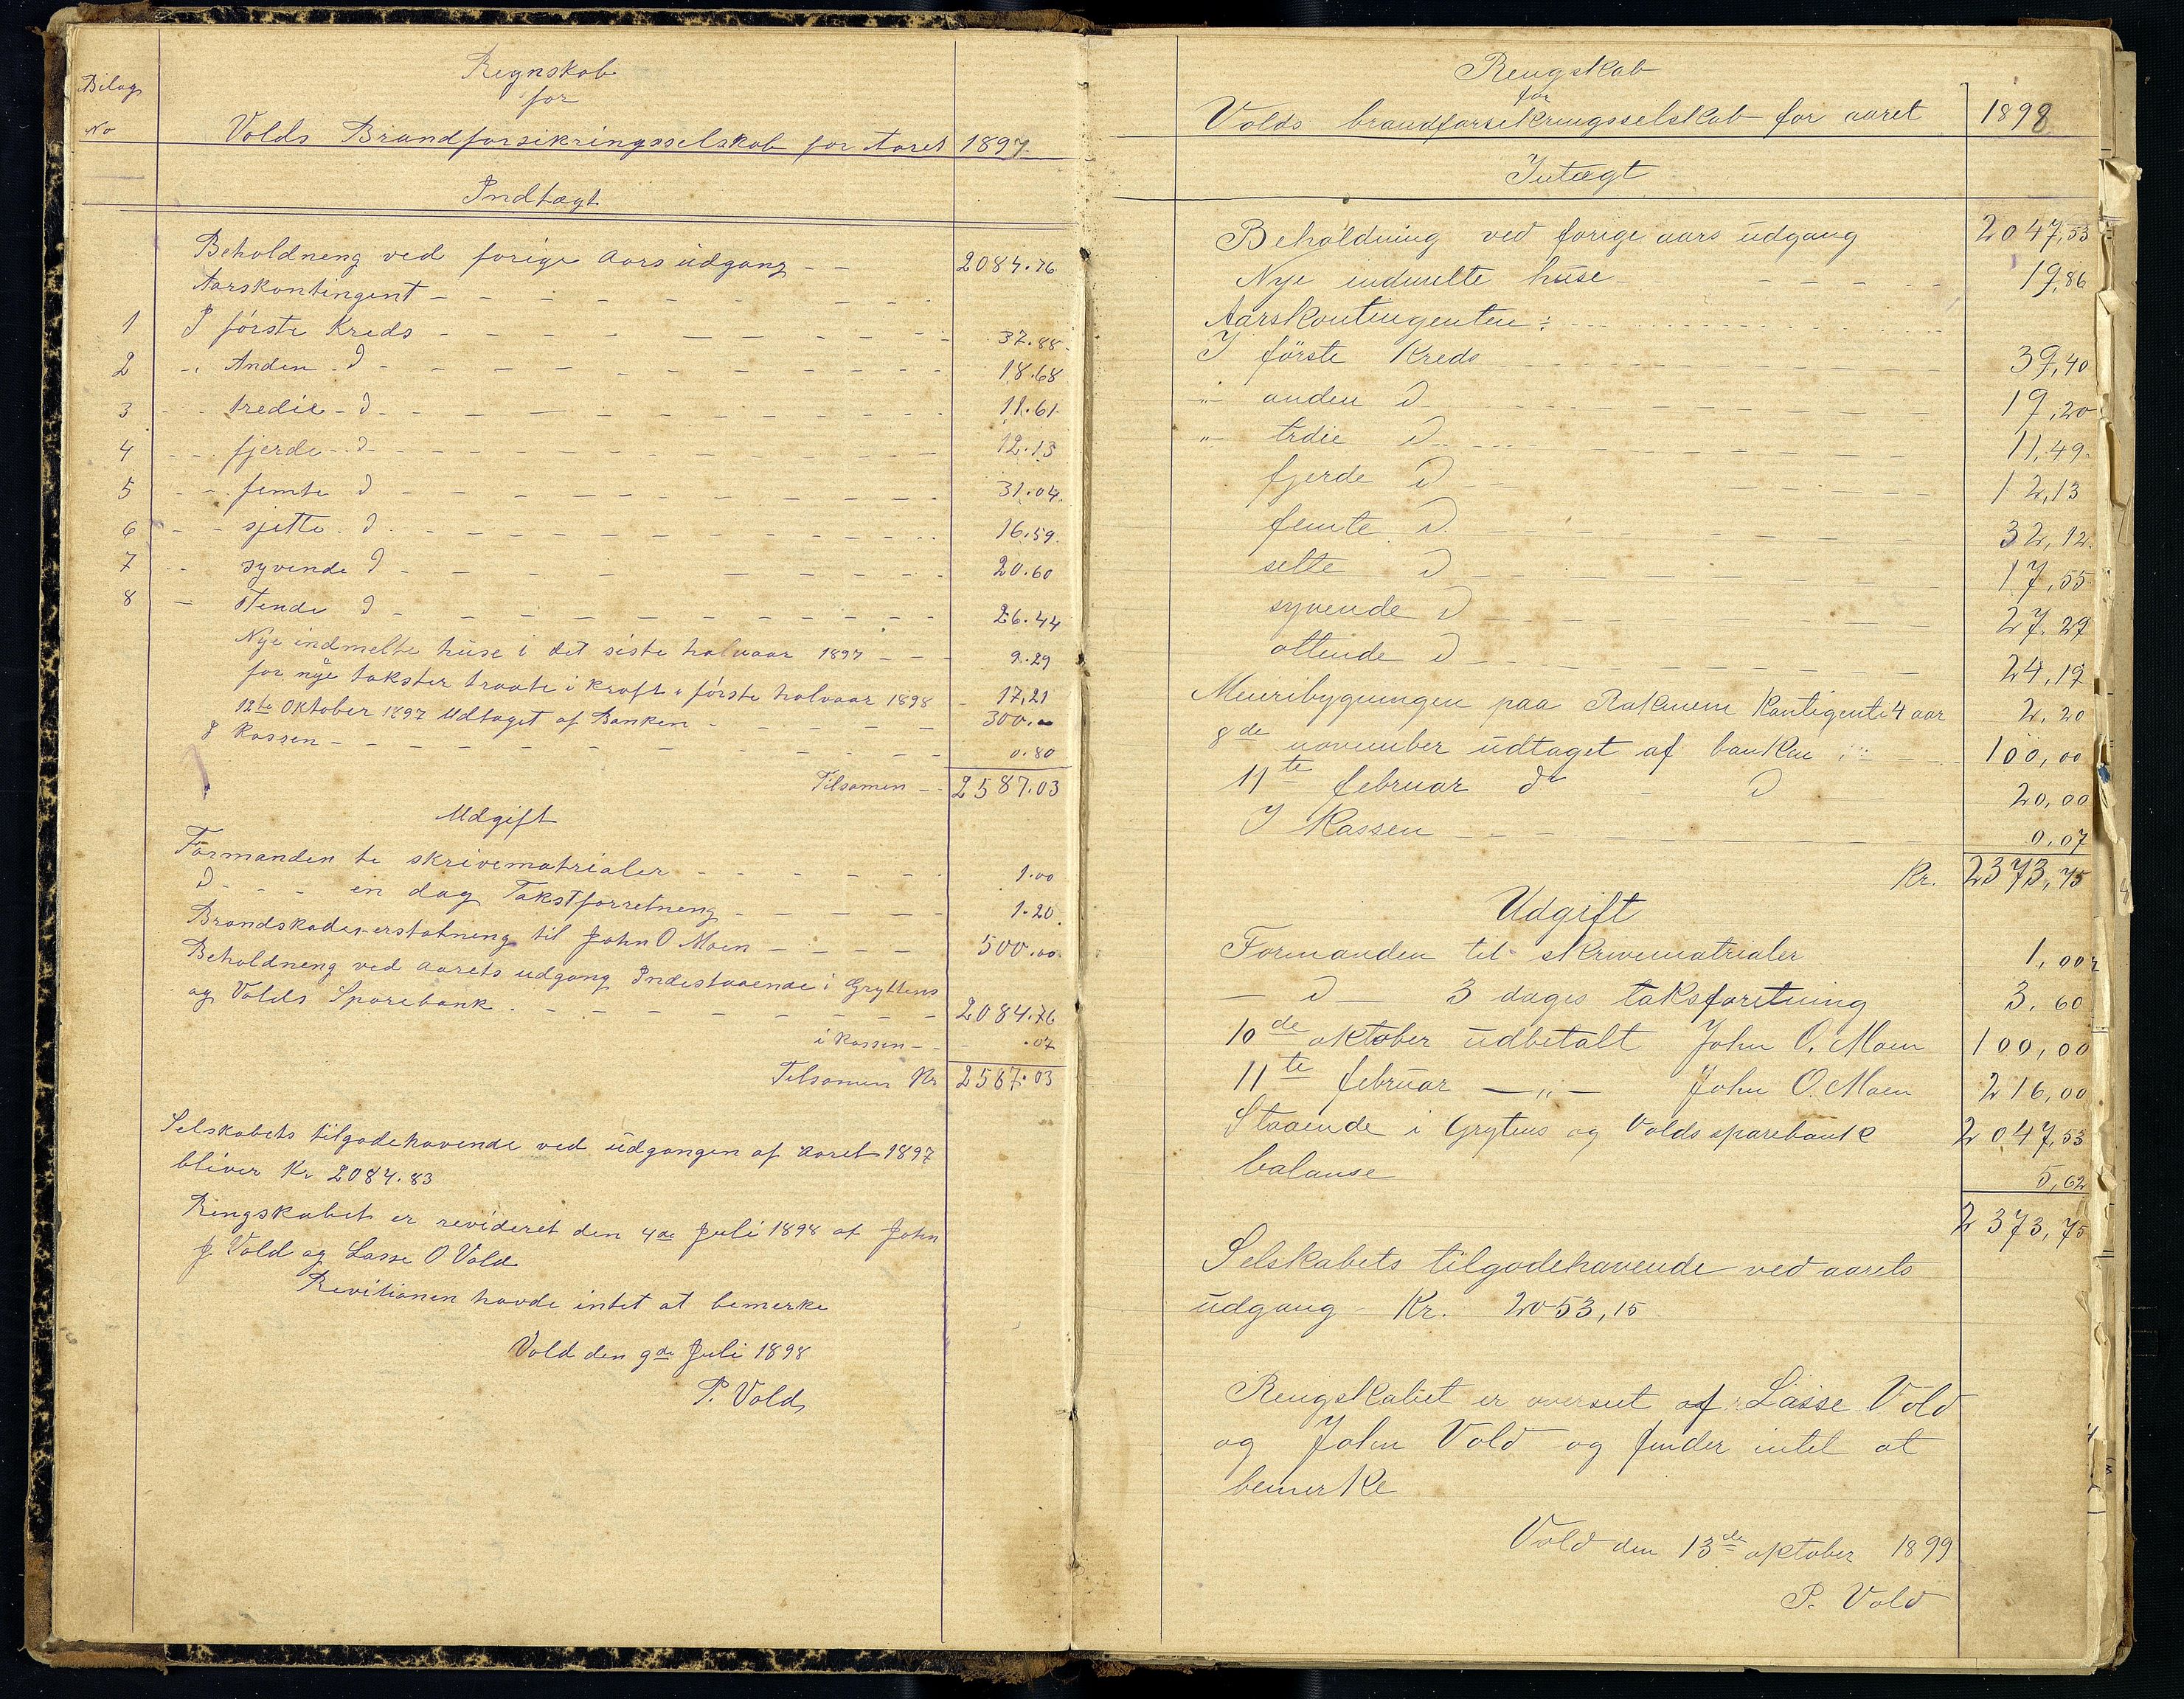 Bilag
No
Regnskab
for
Volds Brandforsikringsselskab for Aaret 1897
Indtægt
Beholdneng ved forige Aars udgang - - 2084.76
Aarskontingent - - - -
1 I første Kreds - - - - 37.88
2 -„ Anden - d - - - - 18.68
3 - - tredie - d - - - - 11.61
4 - - fjerde - d - - - - 12.13
5 - - femte d - - - - 31.04
6 - - sjette d - - - - 16.59
7 - - syvende d - - - - 20.60
8 - ottende d - - - - 26.44
Nye indmelte huse i det siste halvaar 1897 - - - 9.29
for nye takster traate i kraft i første halvaar 1898 - 17,21
12te Oktober 1897 Udtaget af Banken - - - - 300.00
I Kassen - - - - 0.80
Tilsamen - - 2587.03
Udgift
Formanden te skrivematrialer - - - - 1.00
d - - - en dag Takstforretneng - - - - 1.20
Brandskades-erstatneng til John O Moen - - - - 500.00
Beholdneng ved aarets udgang Indestaaende i Gryttens
og Volds Sparebank - - - - 2084.76
i Kassen - - - .07
Tilsamen Kr 2587.03
Selskabets tilgodehavende ved udgangen af Aaret 1897
bliver Kr 2084.83
Ringskabet er revideret den 4de Juli 1898 af John
J. Vold og Lasse O Vold
Revitionen havde intet at bemerke
Vold den 9de Juli 1898
P. Vold
Rengskab
for
Volds brandforsikringsselskab for aaret 1898
Intægt
Beholdning ved forige aars udgang 2047,53
Nye indmelte huse - - - - 19,86
Aarskontingenten ÷ - - - -
I første Kreds - - - - 39,40
-„- anden d - - - - 19,20
„- trdie d - - - - 11,49
fjerde d - - - - 12,13
femte d - - - - 32,12
sette d - - - - 17,55
syvende d - - - - 27,27
ottende d - - - - 24,19
Meieribygningen paa Raknem Kontigenti 4 aar 2,20
8de november udtaget af banken - - 100,00
11te februar d - d 20,00
I Kassen - - - - 0,07
Kr. 2373,75
Udgift
Formanden til skrivematrialer 1,00
- d - 3 dages taksforetning 3,60
10de oktober udbetalt John O. Moen 100,00
11te februar -„- John O. Moen 216,00
Staaende i Grytens og Volds sparebank 2047,53
balanse 5,62
2373,75
Selskabets tilgodehavende ved aarets
udgang Kr. 2053,15
Rengskabet er overset af Lasse Vold
og John Vold og finder intet at
bemerke
Vold den 13de oktober 1899
P. Vold